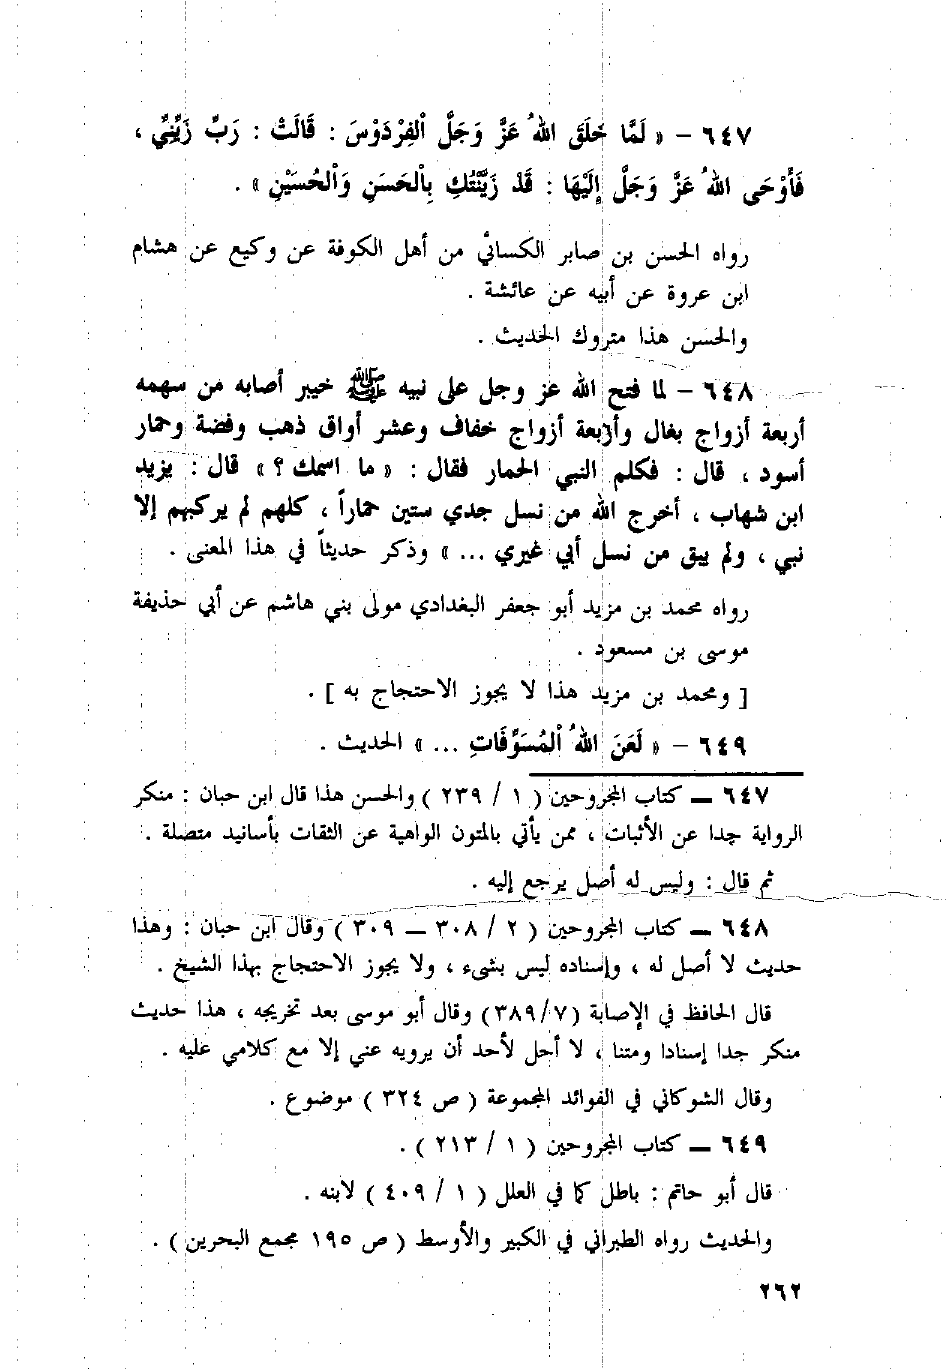 ٦٤٧ - « لَمَّا خَلَقَ اللهُ عَزَّ وَجَلَّ الْفِرْدَوْسَ : قَالَتْ : رَبِّ زَيِّنِّي ،
فَأَوْحَى اللهُ عَزَّ وَجَلَّ إِلَيْهَا : قَدْ زَيَّنْتُكِ بِالْحَسَنِ وَالْحُسَيْنِ » .
رواه الحسن بن صابر الكسائي من أهل الكوفة عن وكيع عن هشام
ابن عروة عن أبيه عن عائشة .
والحسن هذا متروك الحديث .
٦٤٨ - لما فتح الله عز وجل على نبيه ﷺ خيبر أصابه من سهمه
أربعة أزواج بغال وأربعة أزواج خفاف وعشر أواق ذهب وفضة وحمار
أسود ، قال : فكلم النبي الحمار فقال : « ما اسمك ؟ » قال : يزيد
ابن شهاب ، أخرج الله من نسل جدي ستين حماراً ، كلهم لم يركبهم إلا
نبي ، ولم يبق من نسل أبي غيري ... » وذكر حديثاً في هذا المعنى .
رواه محمد بن مزيد أبو جعفر البغدادي مولى بني هاشم عن أبي حذيفة
موسى بن مسعود .
[ ومحمد بن مزيد هذا لا يجوز الاحتجاج به ] .
٦٤٩ - « لَعَنَ اللهُ الْمُسَوِّفَاتِ ... » الحديث .
٦٤٧ ــ كتاب المجروحين ( ١ / ٢٣٩ ) والحسن هذا قال ابن حبان : منكر
الرواية جدا عن الأثبات ، ممن يأتي بالمتون الواهية عن الثقات بأسانيد متصلة .
ثم قال : وليس له أصل يرجع إليه .
٦٤٨ ــ كتاب المجروحين ( ٢ / ٣٠٨ ــ ٣٠٩ ) وقال ابن حبان : وهذا
حديث لا أصل له ، وإسناده ليس بشيء ، ولا يجوز الاحتجاج بهذا الشيخ .
قال الحافظ في الإصابة (٣٨٩/٧) وقال أبو موسى بعد تخريجه ، هذا حديث
منكر جدا إسنادا ومتنا ، لا أحل لأحد أن يرويه عني إلا مع كلامي عليه .
وقال الشوكاني في الفوائد المجموعة ( ص ٣٢٤ ) موضوع .
٦٤٩ ــ كتاب المجروحين ( ١ / ٢١٣ ) .
قال أبو حاتم : باطل كما في العلل ( ١ / ٤٠٩ ) لابنه .
والحديث رواه الطبراني في الكبير والأوسط ( ص ١٩٥ مجمع البحرين ) .
٢٦٢